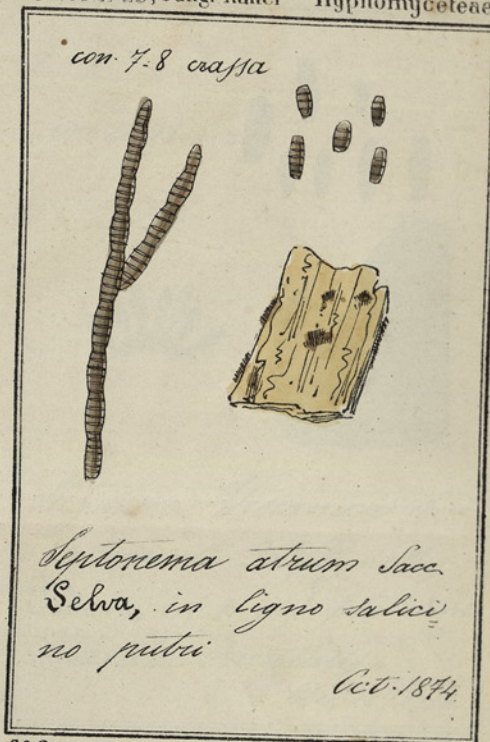 Hyphomyceteae
con. 7-8 crassa
Septonema atrum Sacc.
Selva, in ligno salici=
no putri
Oct. 1874.